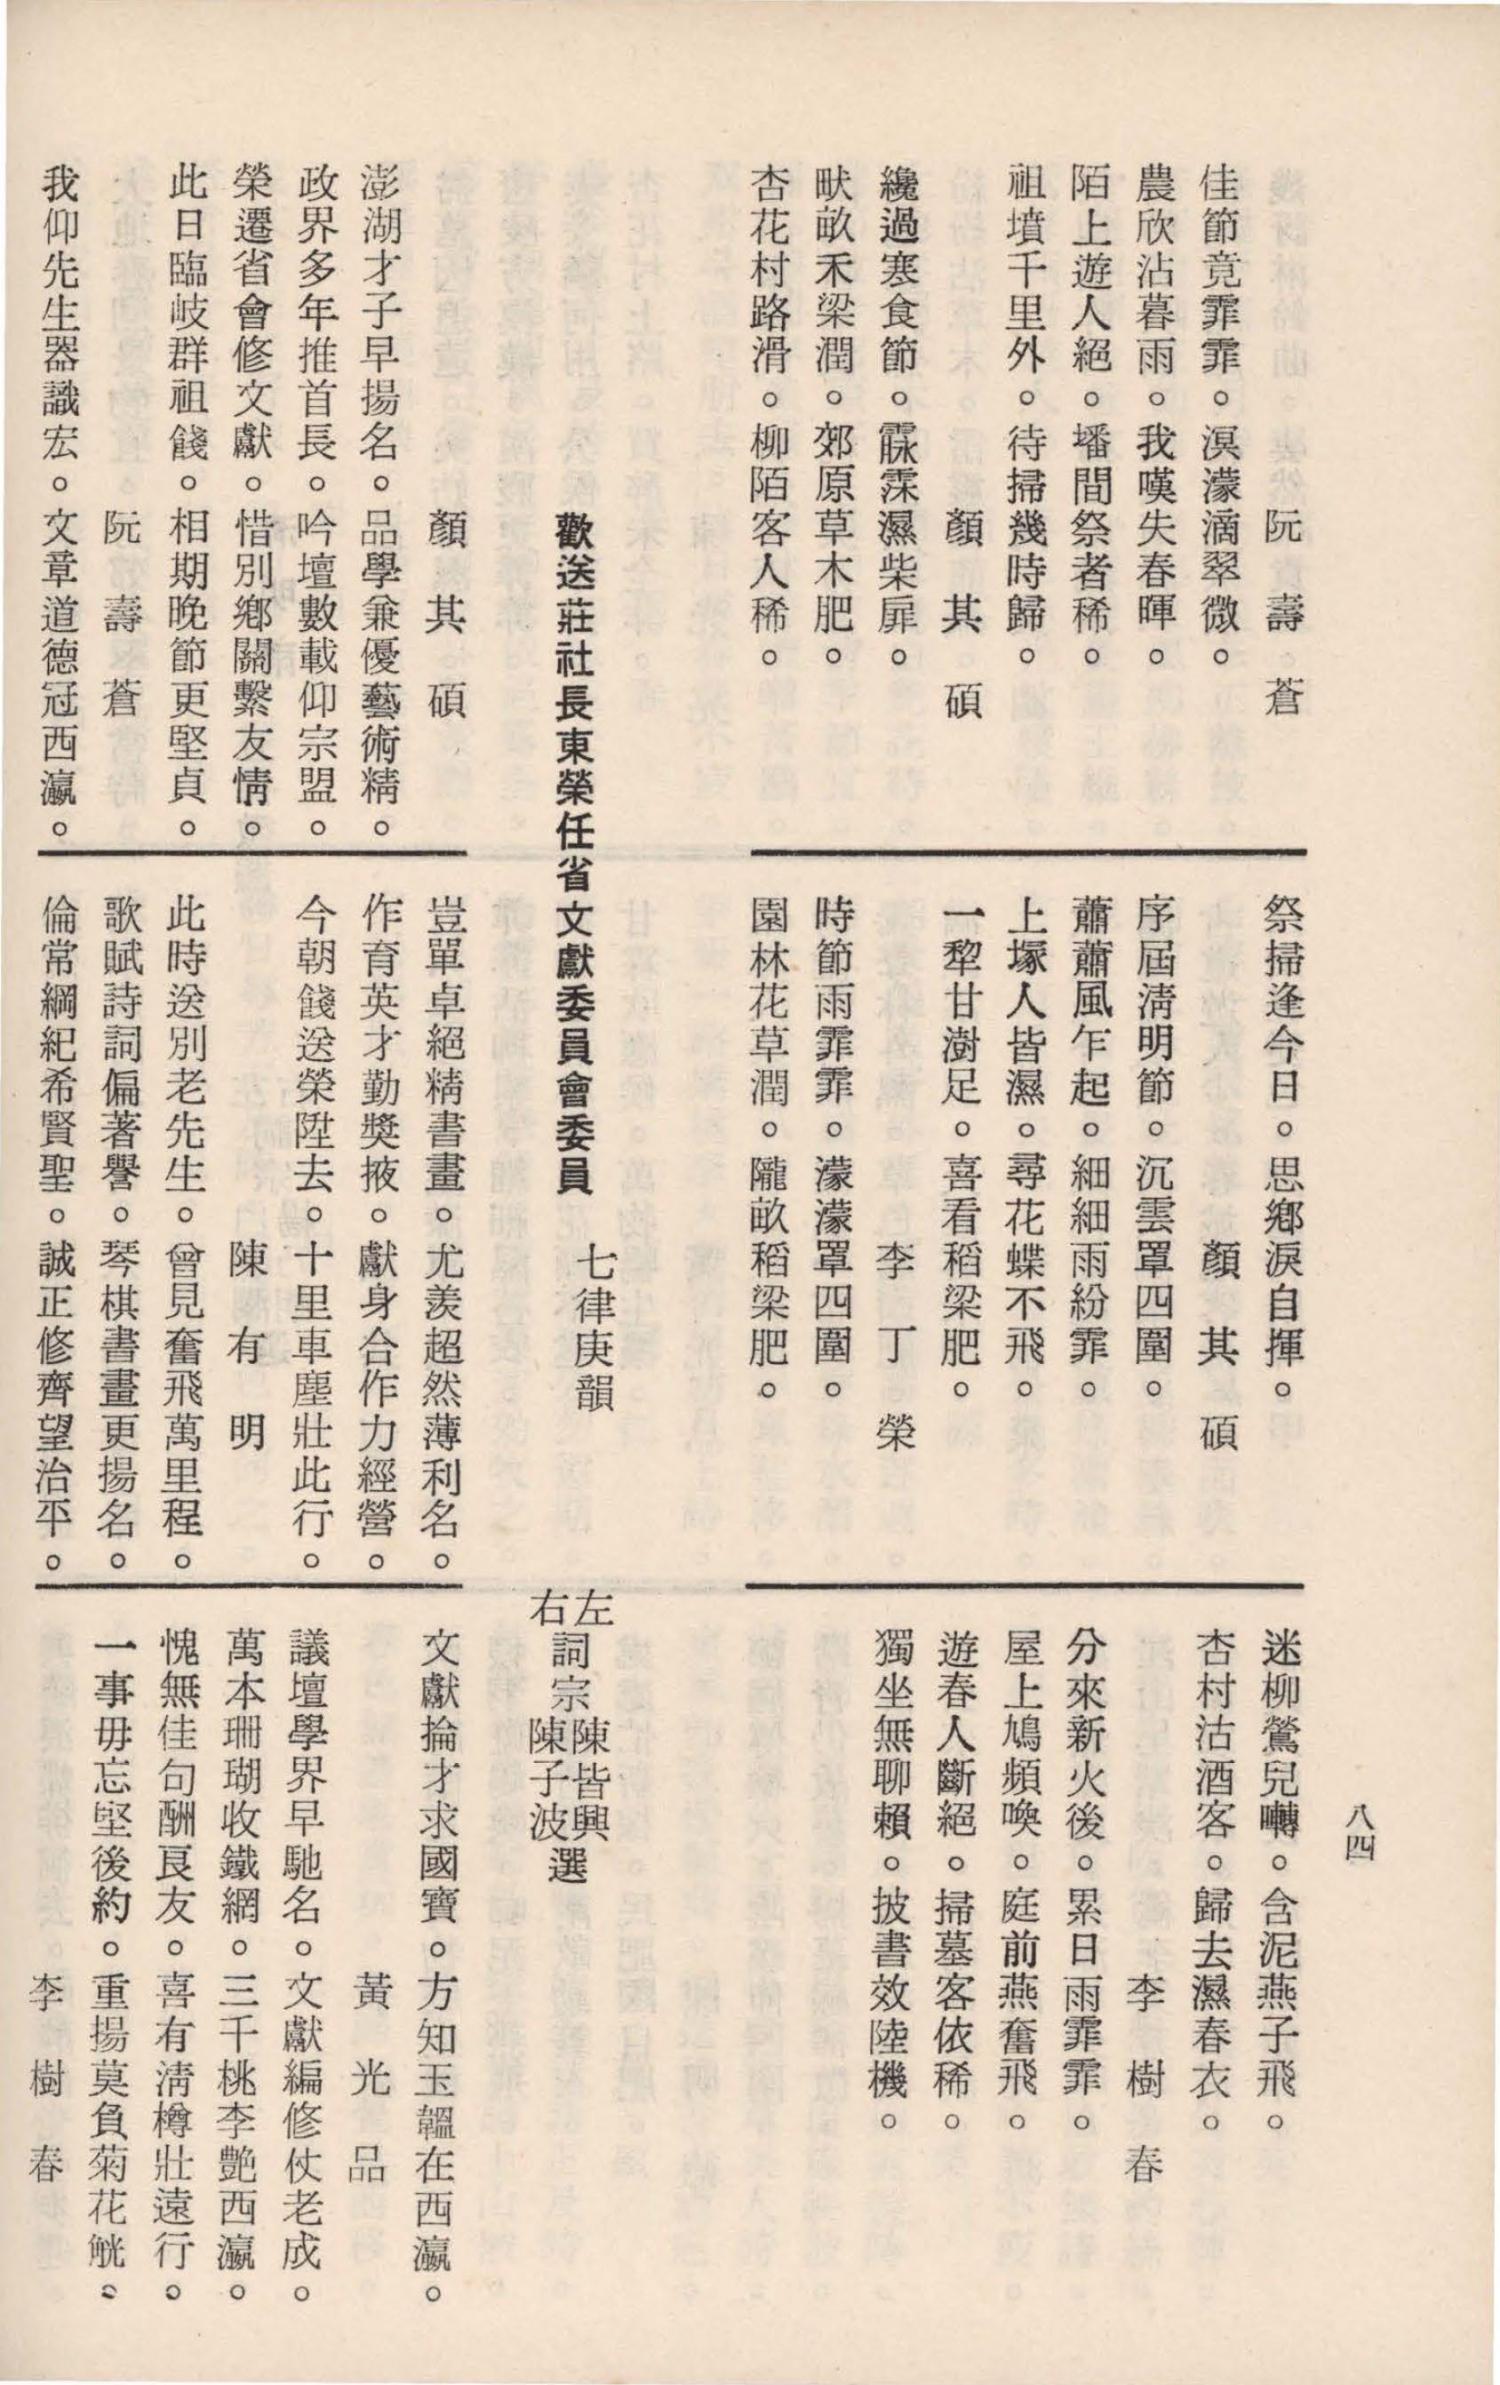 八四
阮壽蒼
佳節竟霏霏。溟濛滴翠微。
農欣沾暮雨。我嘆失春暉。
陌上遊人絕。墦間祭者稀。
祖墳千里外。待掃幾時歸。
顏其碩
纔過寒食節。霡霂濕柴扉。
畎畝禾梁潤。郊原草木肥。
杏花村路滑。柳陌客人稀。
祭掃逢今日。思鄉淚自揮。
顏其碩
序屆淸明節。沉雲罩四圍。
蕭蕭風乍起。細細雨紛霏。
上塚人皆濕。尋花蝶不飛。
一犂甘澍足。喜看稻梁肥。
李丁榮
時節雨霏霏。濛濛罩四圍。
園林花草潤。隴畝稻梁肥。
迷柳鶯兒囀。含泥燕子飛。
杏村沽酒客。歸去濕春衣。
李樹春
分來新火後。累日雨霏霏。
屋上鳩頻喚。庭前燕奮飛。
遊春人斷絕。掃墓客依稀。
獨坐無聊賴。披書效陸機。
歡送莊社長東榮任省文獻委員會委員
七律庚韻
左詞宗陳皆興選
右詞宗陳子波選
顏其碩
澎湖才子早揚名。品學兼優藝術精。
政界多年推首長。吟壇數載仰宗盟。
榮遷省會修文獻。惜別鄉關繫友情。
此日臨岐群祖餞。相期晚節更堅貞。
阮壽蒼
我仰先生器識宏。文章道德冠西瀛。
豈單卓絕精書畫。尤羨超然薄利名。
作育英才勤獎掖。獻身合作力經營。
今朝餞送榮陞去。十里車塵壯此行。
陳有明
此時送別老先生。曾見奮飛萬里程。
歌賦詩詞偏著譽。琴棋書畫更揚名。
倫常綱紀希賢聖。誠正修齊望治平。
文獻掄才求國寶。方知玉韞在西瀛。
黃光品
議壇學界早馳名。文獻編修仗老成。
萬本珊瑚收鐵網。三千桃李艷西瀛。
愧無佳句酬良友。喜有淸樽壯遠行。
一事毋忘堅後約。重揚莫負菊花觥。
李樹春